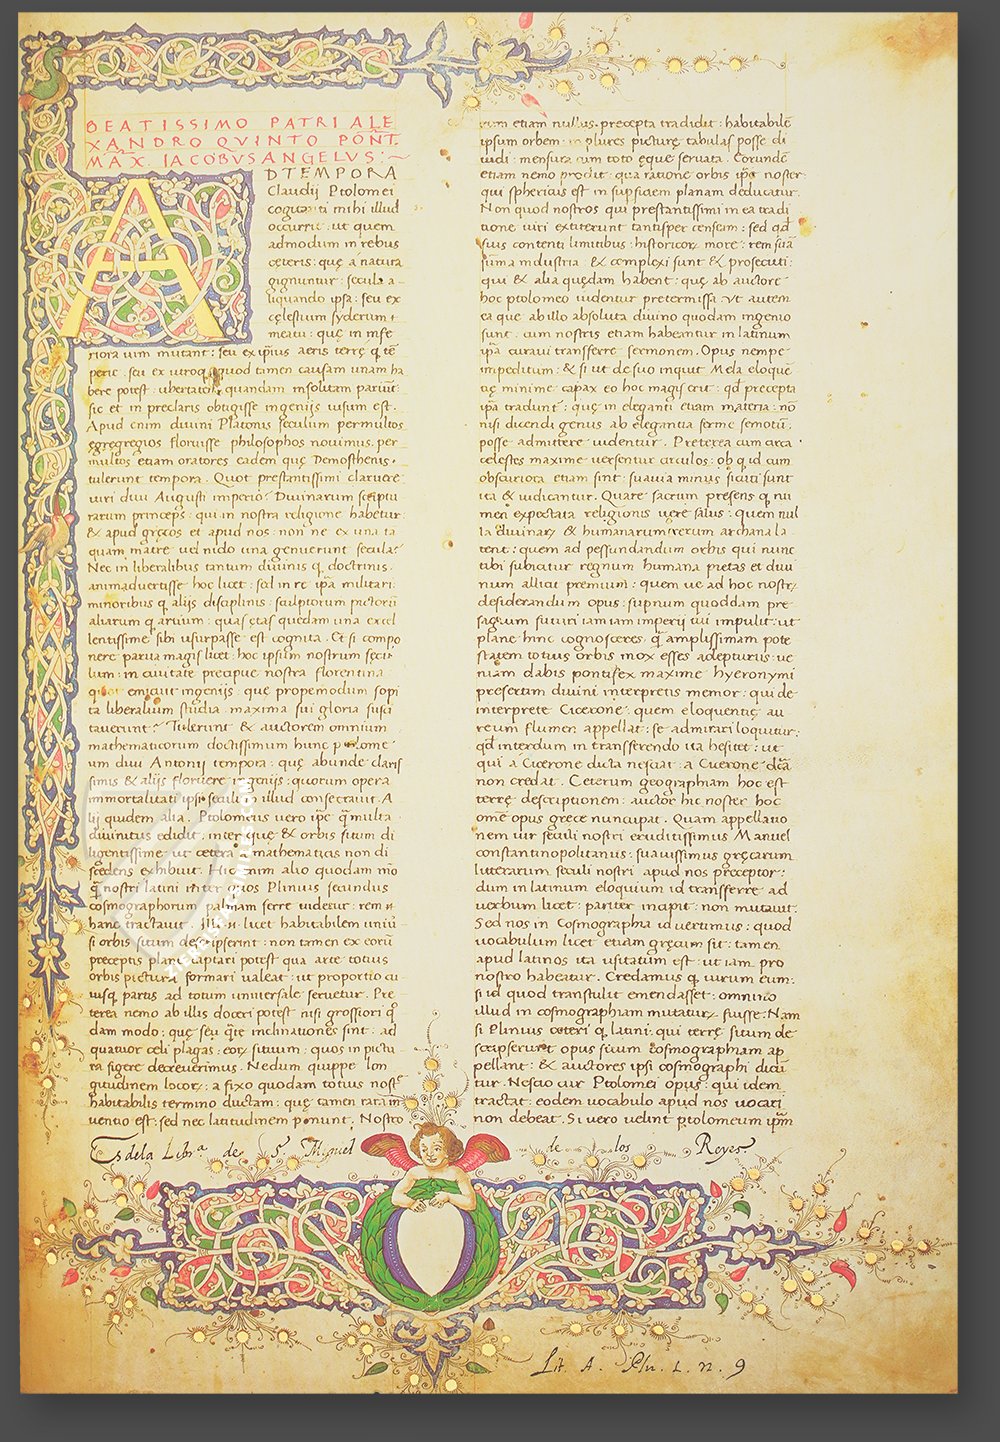 BEATISSIMO PATRI ALE
XANDRO QVINTO PONT.
MAX. IACOBVS ANGELVS:~
AD TEMPORA
Claudij Ptolomei
cogitanti mihi illud
occurrit: ut quem
admodum in rebus
ceteris: quę a natura
gignuntur: secula a-
liquando ipsa: seu ex
cęlestium syderum
meatu: quę in infe
riora uim mutant: seu ex ipsius aeris terrę q̃ tẽ
perie. seu ex utroq̃ quod tamen causam unam ha
bere potest. ubertatem quandam insolitam pariũt:
sic et in preclaris obtigisse ingenijs uisum est.
Apud enim diuini Platonis seculum permultos
egregregios floruisse philosophos nouimus. per
multos etiam oratores eadem quę Demosthenis.
tulerunt tempora. Quot prestantissimi claruere
uiri diui Augusti imperio? Diuinarum scriptu
rarum princeps: qui in nostra religione habetur
& apud gręcos et apud nos: non ne ex una ta
quam matre uel nido una genuerunt secula?
Nec in liberalibus tantum diuinis q̃ doctrinis.
animaduertisse hoc licet: sed in re ip̃a militari:
minoribus q̃ alijs disciplinis: sculptorum pictorũ
aliarum q̃ artium: quas ętas quędam una excel
lentissime sibi usurpasse est cognita. Et si compo
nere parua magis licet: hoc ipsum nostrum secu
lum: in ciuitate precipue nostra florentina
quot emicuit ingenijs. quę propemodum sopi
ta liberalium studia. maxima sui gloria susci
tauerunt? Tulerunt & auctorem omnium
mathematicorum doctissimum hunc ptolome
um diui Antonij tempora: quę abunde claris
simis & alijs floruere ingenijs: quorum opera
immortalitati ipsi seculum illud consecrauit. A
lij quidem alia. Ptolomeus uero ip̃e q̃ multa
diuinitus edidit: inter quę & orbis situm di
ligentissime: ut cetera mathematicus non di
scedens exhibuit. Hic enim alio quodam mõ
q̃ nostri latini inter quos Plinius secundus
cosmographorum palmam ferre uidetur: rem
hanc tractauit. Illi licet habitabilem uniuer
si orbis situm descripserint: non tamen ex eorũ
preceptis plane captari potest qua arte totius
orbis pictura formari ualeat: ut proportio cu
iusq̃ partis ad totum uniuersale seruetur. Pre
terea nemo ab illis doceri potest nisi grossiori q̃
dam modo: quę seu q̃te inclinationes sint: ad
quatuor celi plagas: situum: quos in pictu
ra figere decreuerimus. Nedum quippe lon
gitudinem locor̃: a fixo quodam totius nostr̃
habitabilis termino ductam: quę tamen raram in
uentio est: sed nec latitudinem ponunt. Nostro
rum etiam nullus. precepta tradidit: habitabilẽ
ipsum orbem in plures picturę tabulas posse di
uidi: mensura cum toto ęque seruata. Eorundẽ
etiam nemo prodit: qua ratione orbis ip̃e noster:
qui sphericus est in supficiem planam deducatur.
Non quod nostros qui prestantissimi in ea tradi
tione uiri extiterunt tantisper censeam: sed qd̃
suis contenti limitibus: historicor̃ more: rem suã
sũma industria & complexi sunt & prosecuti:
qui & alia quędam habent: quę ab auctore
hoc ptolomeo uidentur pretermissa. Vt autem
ea que ab illo absoluta diuino quodam ingenio
sunt: cum nostris etiam habeantur in latinum
ip̃a curaui transferre sermonem. Opus nempe
impeditum: & si ut de suo inquit Mela eloquẽ
tię minime capax eo hoc magis erit: qd̃ precepta
ip̃a tradunt: quę in eleganti etiam materia: nõ
nisi dicendi genus ab elegantia ferme semotũ.
posse admittere uidentur. Preterea cum circa
celestes maxime uersentur circulos: ob q̃ id cum
obscuriora etiam sint: suauia minus sicuti sunt
ita & iudicantur. Quare sacrum presens q̃ nu
men expectata religionis uere salus: quem nul
la diuinar̃ & humanarum rerum archana la
tent: quem ad pessundandum orbis qui nunc
tibi subicitur regnum humana pietas et diui
num allicit premium: quem ue ad hoc nostr̃
desiderandum opus: supnum quoddam pre
sagium futuri iam iam imperij tui impulit: ut
plane hinc cognosceres. q̃ amplissimam pote
statem totius orbis mox esses adepturus: ue
niam dabis pontifex maxime hyeronymi
presertim diuini interpretis memor: qui de
interprete Cicerone quem eloquentię au
reum flumen appellat: se admirari loquitur:
qd̃ interdum in transferendo ita hesitet: ut
qui a Cicerone dicta nesciat: a Cicerone dictã
non credat. Ceterum geographiam hoc est
terrę descriptionem: auctor hic noster hoc
om̃e opus gręce nuncupat. Quam appellatio
nem uir seculi nostri eruditissimus Manuel
constantinopolitanus: suauissimus gręcarum
litterarum seculi nostri apud nos pręceptor:
dum in latinum eloquium id transferre ad
uerbum licet: pariter incipit: non mutauit.
Sed nos in Cosmographia id uertimus: quod
uocabulum licet etiam gręcum sit: tamen
apud latinos ita usitatum est: ut iam pro
nostro habeatur. Credamus q̃ uirum eum:
si id quod transtulit emendasset: omnino
illud in cosmographiam mutatur̃ fuisse: Nam
si Plinius ceteri q̃ latini: qui terrę situm de
scripserunt opus sicum cosmographiam ap
pellant: & auctores ipsi cosmographi dicũ
tur. Nescio cur Ptolomei opus: qui idem
tractat: eodem uocabulo apud nos uocari
non debeat. Si uero uelint ptolomeum ip̃m
Es dela Libr.ª de S. Miguel de los Reyes.
Lit. A. Plu. 1. n. 9
ZIEREIS FACSIMILES.COM